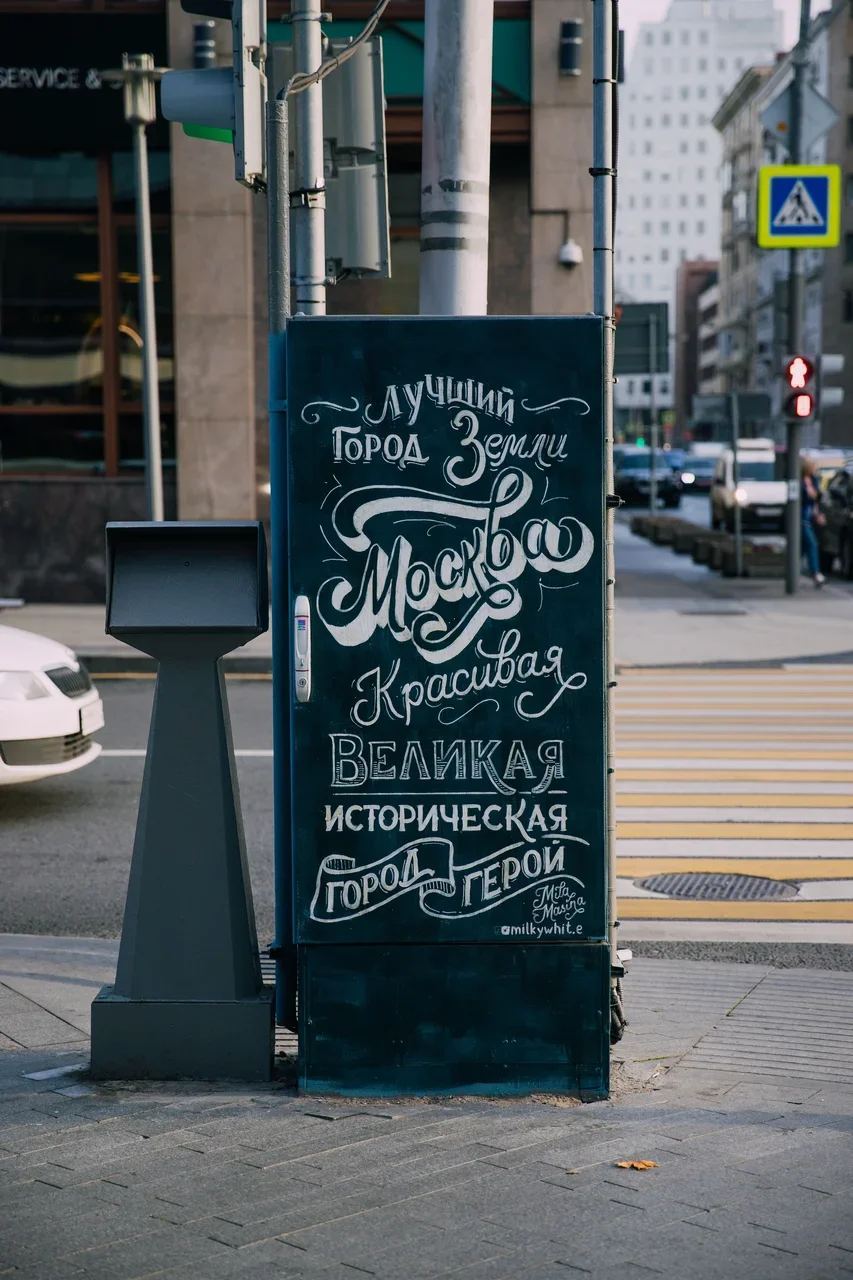 SERVICE &
Лучший
Город Земли
Москва
Красивая
Великая
ИСТОРИЧЕСКАЯ
ГОРОД ГЕРОЙ
Mila
Masina
@milkywhit.e